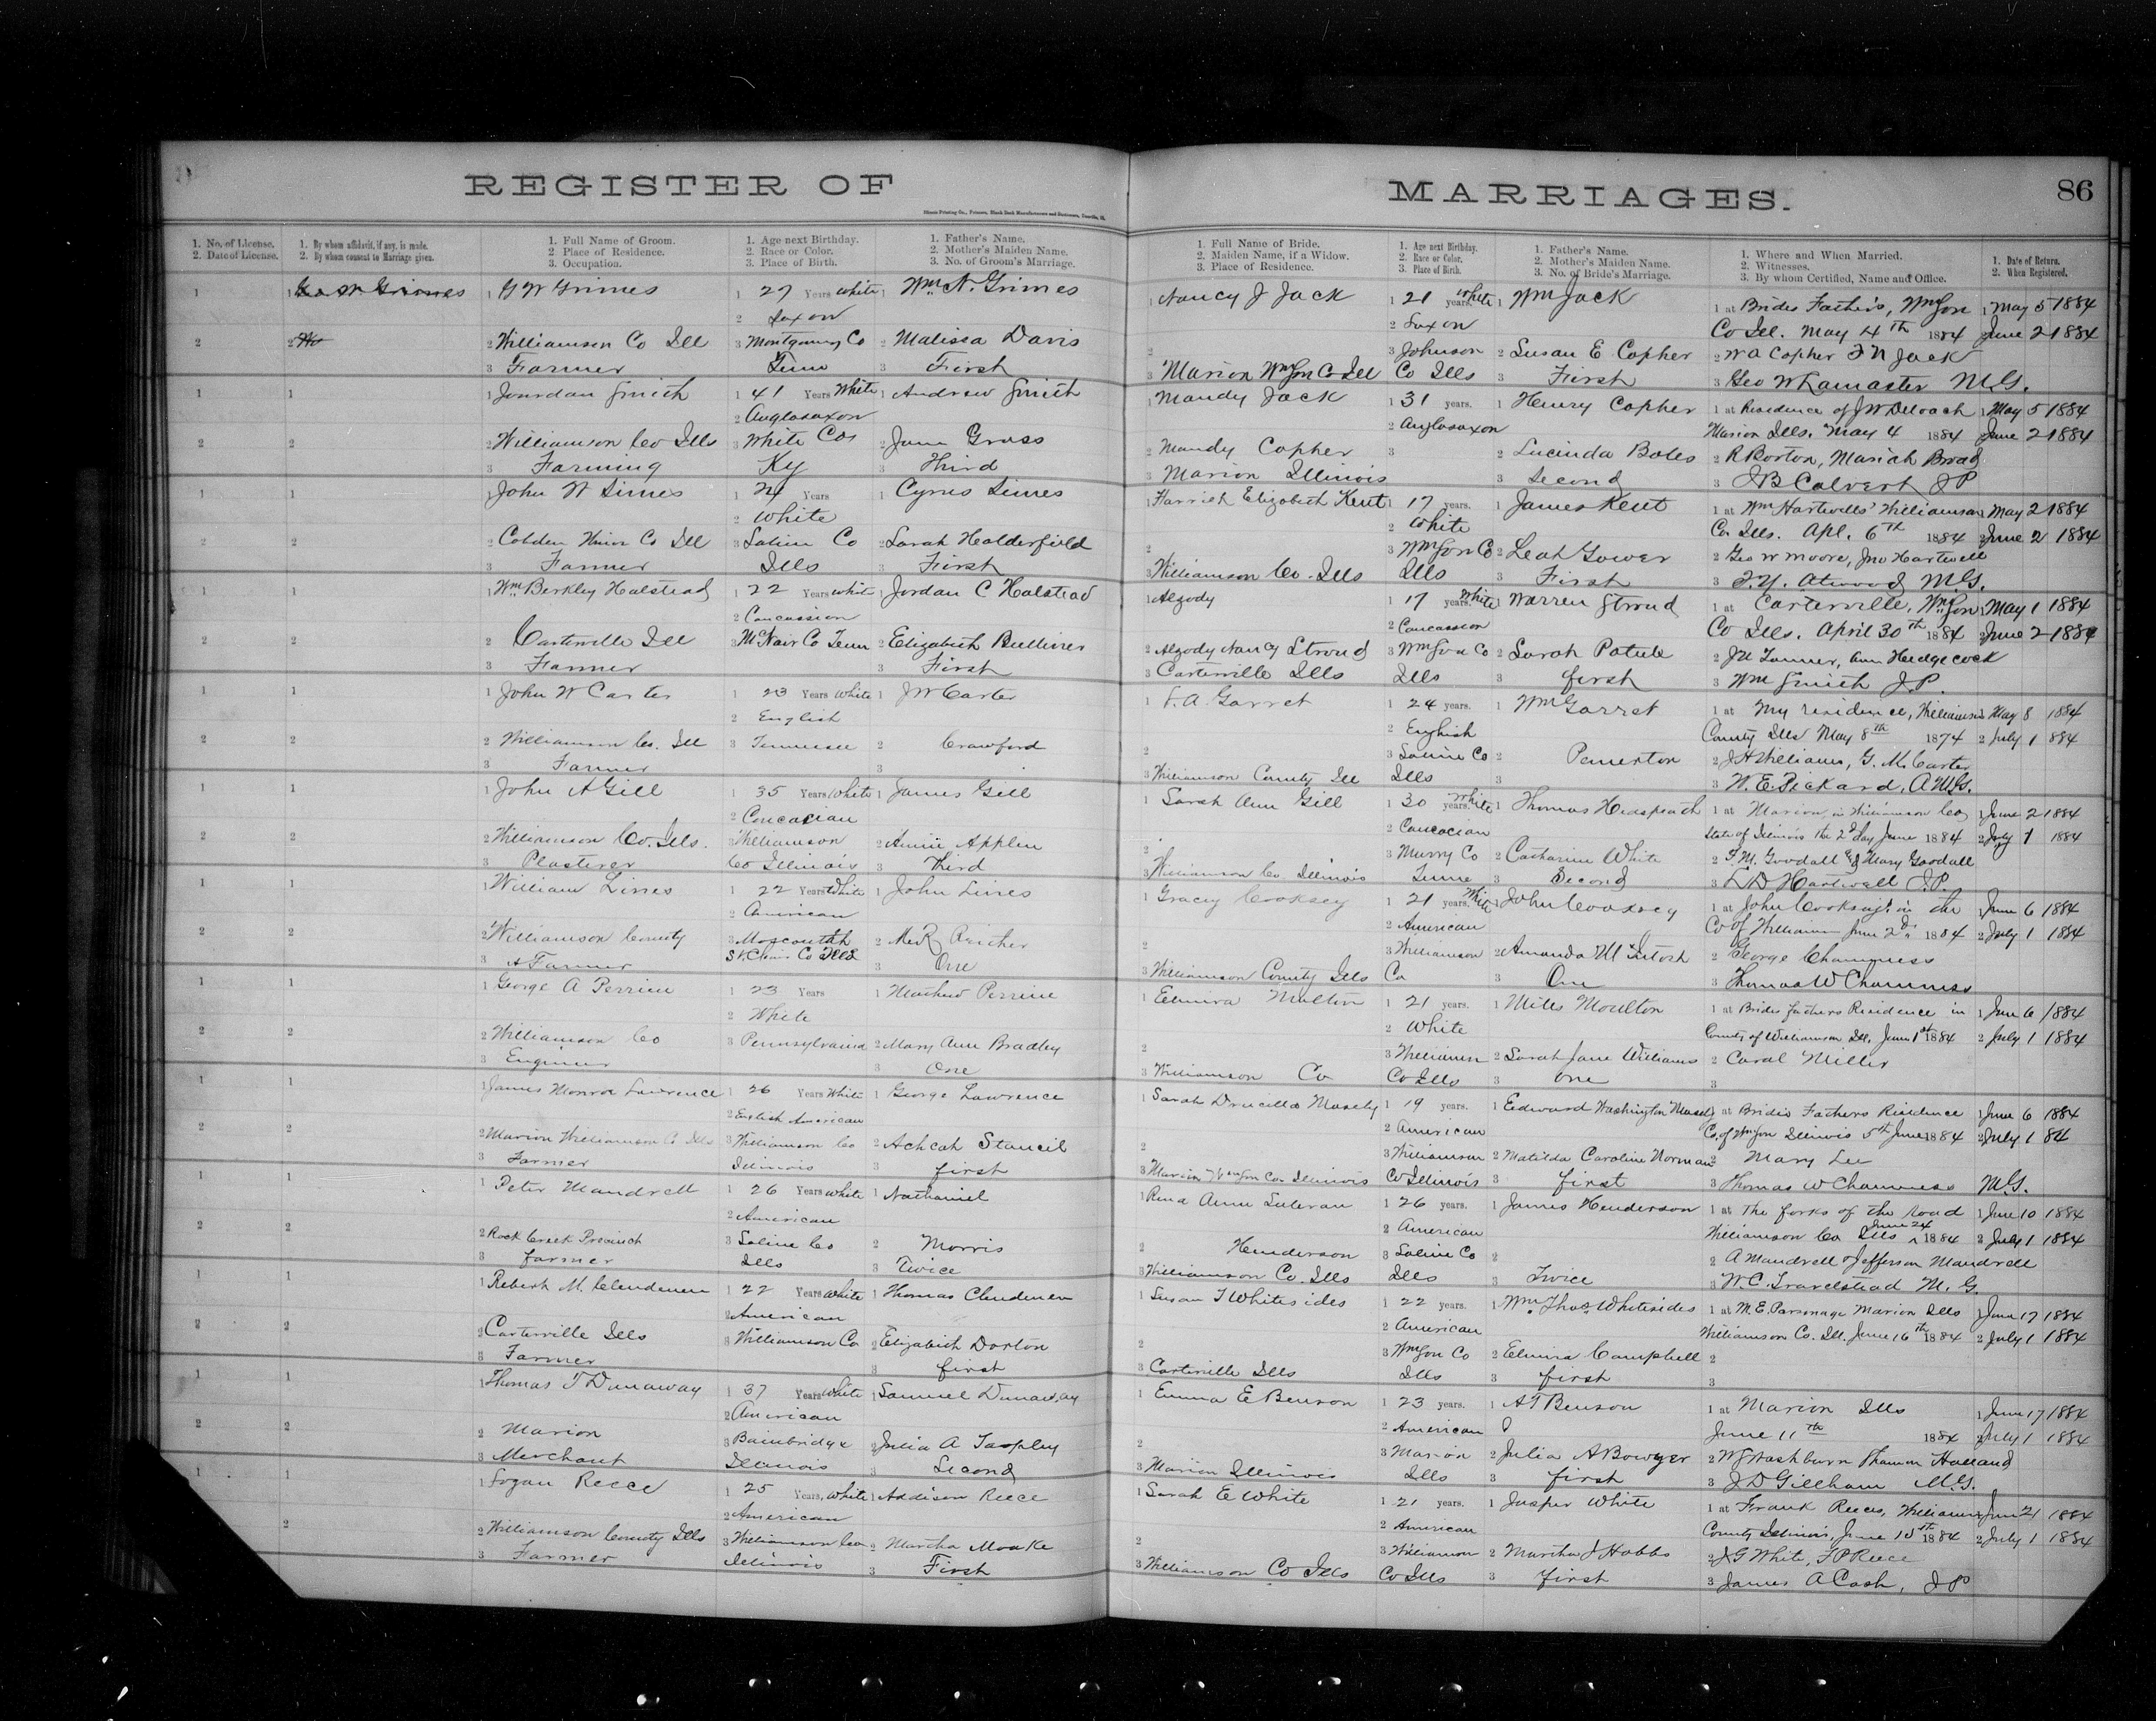 REGISTER OF
MARRIAGES.
86
Illinois Printing Co., Printers, Blank Book Manufacturers and Stationers, Danville, Ill.
1. No. of License.
2. Date of License.
1. By whom affidavit, if any, is made.
2. By whom consent to Marriage given.
1. Full Name of Groom.
2. Place of Residence.
3. Occupation.
1. Age next Birthday.
2. Race or Color.
3. Place of Birth.
1. Father's Name.
2. Mother's Maiden Name.
3. No. of Groom's Marriage.
1. Full Name of Bride.
2. Maiden Name, if a Widow.
3. Place of Residence.
1. Age next Birthday.
2. Race or Color.
3. Place of Birth.
1. Father's Name.
2. Mother's Maiden Name.
3. No. of Bride's Marriage.
1. Where and When Married.
2. Witnesses.
3. By whom Certified, Name and Office.
1. Date of Return.
2. When Registered.
1 Geo W Grimes
2 No
1 G W Grimes
2 Williamson Co Ill
3 Farmer
1 27 Years White
2 Saxon
3 Montgomery Co
Tenn
1 Wm N. Grimes
2 Malissa Davis
3 First
1 Nancy J Jack
2
3 Marion Wmson Co Ill
1 21 years White
2 Saxon
3 Johnson
Co Ills
1 Wm Jack
2 Susan E Copher
3 First
1 at Brides Father's, Wmson
Co Ill. May 4th 1884
2 W A Copher F N Jack
3 Geo W Lamaster M.G.
1 May 5 1884
June 2 1884
1 Jourdan Smith
2 Williamson Co Ills
3 Farming
1 41 Years White
2 Anglosaxon
3 White Co
Ky
1 Andrew Smith
2 Jane Gross
3 Third
1 Mandy Jack
2 Mandy Copher
3 Marion Illinois
1 31 years.
2 Anglosaxon
3
1 Henry Copher
2 Lucinda Boles
3 Second
1 at Residence of J W Deloach
Marion Ills. May 4 1884
2 R Borton, Mariah Broad
3 J B Calvert J P
1 May 5 1884
June 2 1884
1 John W Simes
2 Cobden Union Co Ill
3 Farmer
1 24 Years
2 White
3 Saline Co
Ills
1 Cyrus Simes
2 Sarah Holderfield
3 First
1 Harriet Elizabeth Kent
2
3 Williamson Co. Ills
1 17 years.
2 White
3 Wmson Co
Ills
1 James Kent
2 Leah Gower
3 First
1 at Wm Hartwells' Williamson
Co Ills. Apl. 6th 1884
2 Geo W Moore, Jno Hartwell
3 F. Y. Atwood M.G.
1 May 2 1884
2 June 2 1884
1 Wm Berkley Halstead
2 Carterville Ill
3 Farmer
1 22 Years White
2 Caucassion
3 McNair Co Tenn
1 Jordan C Halstead
2 Elizabeth Bulliner
3 First
1 Algody
2 Algody Nancy Stroud
3 Carterville Ills
1 17 years. White
2 Caucassion
3 Wmson Co
Ills
1 Warren Stroud
2 Sarah Patule
3 first
1 at Carterville, Wmson
Co Ills. April 30th 1884
2 J H Tanner, Ann Hedgecock
3 Wm Smith J.P.
1 May 1 1884
2 June 2 1884
1 John W Carter
2 Williamson Co. Ill
3 Farmer
1 23 Years White
2 English
3 Tennessee
1 J W Carter
2 Crawford
3
1 F. A. Garret
2
3 Williamson County Ill
1 24 years.
2 English
3 Saline Co
Ills
1 Wm Garret
2 Pemerton
3
1 at My residence, Williamson
County Ills May 8th 1874
2 J H Williams, G. M. Carter
3 W. E. Pickard, A M.G.
1 May 8 1884
2 July 1 884
1 John A Gill
2 Williamson Co. Ills.
3 Plasterer
1 35 Years White
2 Concasian
3 Williamson
Co Illinois
1 James Gill
2 Annie Applin
3 Third
1 Sarah Ann Gill
2
3 Williamson Co Illinois
1 30 years. White
2 Caucacian
3 Murry Co
Tenne
1 Thomas Hedspeach
2 Catharine White
3 Second
1 at Marion, in Williamson Co
State of Illinois the 2d day June 1884
2 F. M. Goodall & Mary Goodall
3 L D Hartwell J.P.
1 June 2 1884
2 July 1 1884
1 William Lines
2 Williamson County
3 A Farmer
1 22 Years White
2 American
3 Mascoutah
St. Clair Co Ills
1 John Lines
2 M R Reicher
3 One
1 Gracey Cooksey
2
3 Williamson County Ills
1 21 years. White
2 American
3 Williamson
Co
1 John Cooksey
2 Amanda McIntosh
3 One
1 at John Cooksey's in the
Co of Williamson June 2d 1884
2 George Chamness
3 Thomas W Chamness
1 June 6 1884
2 July 1 1884
1 George A Perrine
2 Williamson Co
3 Engineer
1 23 Years
2 White
3 Pennsylvania
1 Mathew Perrine
2 Mary Ann Bradley
3 One
1 Elmira Molton
2
3 Williamson Co
1 21 years.
2 White
3 Williamson
Co Ills
1 Miles Moulton
2 Sarah Jane Williams
3 one
1 at Brides fathers Residence in
County of Williamson Ill. June 1st 1884
2 Caral Miller
3
1 June 6 1884
2 July 1 1884
1 James Monroe Lawrence
2 Marion Williamson Co Ills
3 Farmer
1 26 Years White
2 English American
3 Williamson Co
Illinois
1 George Lawrence
2 Achcah Stancil
3 first
1 Sarah Drucilla Mosely
2
3 Marion Wmson Co. Illinois
1 19 years.
2 American
3 Williamson
Co Illinois
1 Eedward Washington Mosely
2 Matilda Caroline Norman
3 first
1 at Brides Fathers Residence
Co. of Wmson Illinois 5th June 1884
2 Mary Lee
3 Thomas W Chamness M.G.
1 June 6 1884
2 July 1 84
1 Peter Mandrell
2 Rock Creek Precinct
3 farmer
1 26 Years White
2 American
3 Saline Co
Ills
1 Nathaniel
2 Morris
3 Twice
1 Rena Anne Suleran
2 Henderson
3 Williamson Co. Ills
1 26 years.
2 American
3 Saline Co
Ills
1 James Henderson
2
3 Twice
1 at The forks of the road
Williamson Co Ills June 24 1884
2 A Mandrell & Jefferson Mandrell
3 W. C. Travelstead M. G.
1 June 10 1884
2 July 1 1884
1 Robert M. Clendenen
2 Carterville Ills
3 Farmer
1 22 Years White
2 American
3 Williamson Co
1 Thomas Clendenen
2 Elizabeth Dorton
3 first
1 Susan T Whitesides
2
3 Carterville Ills
1 22 years.
2 American
3 Wmson Co
Ills
1 Wm. Thos. Whitesides
2 Elmira Campbell
3 first
1 at M. E. Parsonage Marion Ills
Williamson Co. Ill. June 16th 1884
2
3
1 June 17 1884
2 July 1 1884
1 Thomas T Dunaway
2 Marion
3 Merchant
1 37 Years White
2 American
3 Bainbridge
Illinois
1 Samuel Dunaway
2 Julia A Tarpley
3 Second
1 Emma E Benson
2
3 Marion Illinois
1 23 years.
2 American
3 Marion
Ills
1 A T Benson
2 Julia A Bowyer
3 first
1 at Marion Ills
June 11th 1884
2 W J Washburn Shannon Holland
3 J D Gillham M.G.
1 June 17 1884
2 July 1 1884
1 Logan Reece
2 Williamson County Ills
3 Farmer
1 25 Years, White
2 American
3 Williamson Co
Illinois
1 Addison Reece
2 Martha Moake
3 First
1 Sarah E White
2
3 Williamson Co Ills
1 21 years.
2 American
3 Williamson
Co Ills
1 Jasper White
2 Martha J Hobbs
3 first
1 at Frank Reeces, Williamson
County Illinois, June 15th 1884
2 J G White, F P Reece
3 James A Cash, J P
1 June 21 1884
2 July 1 1884